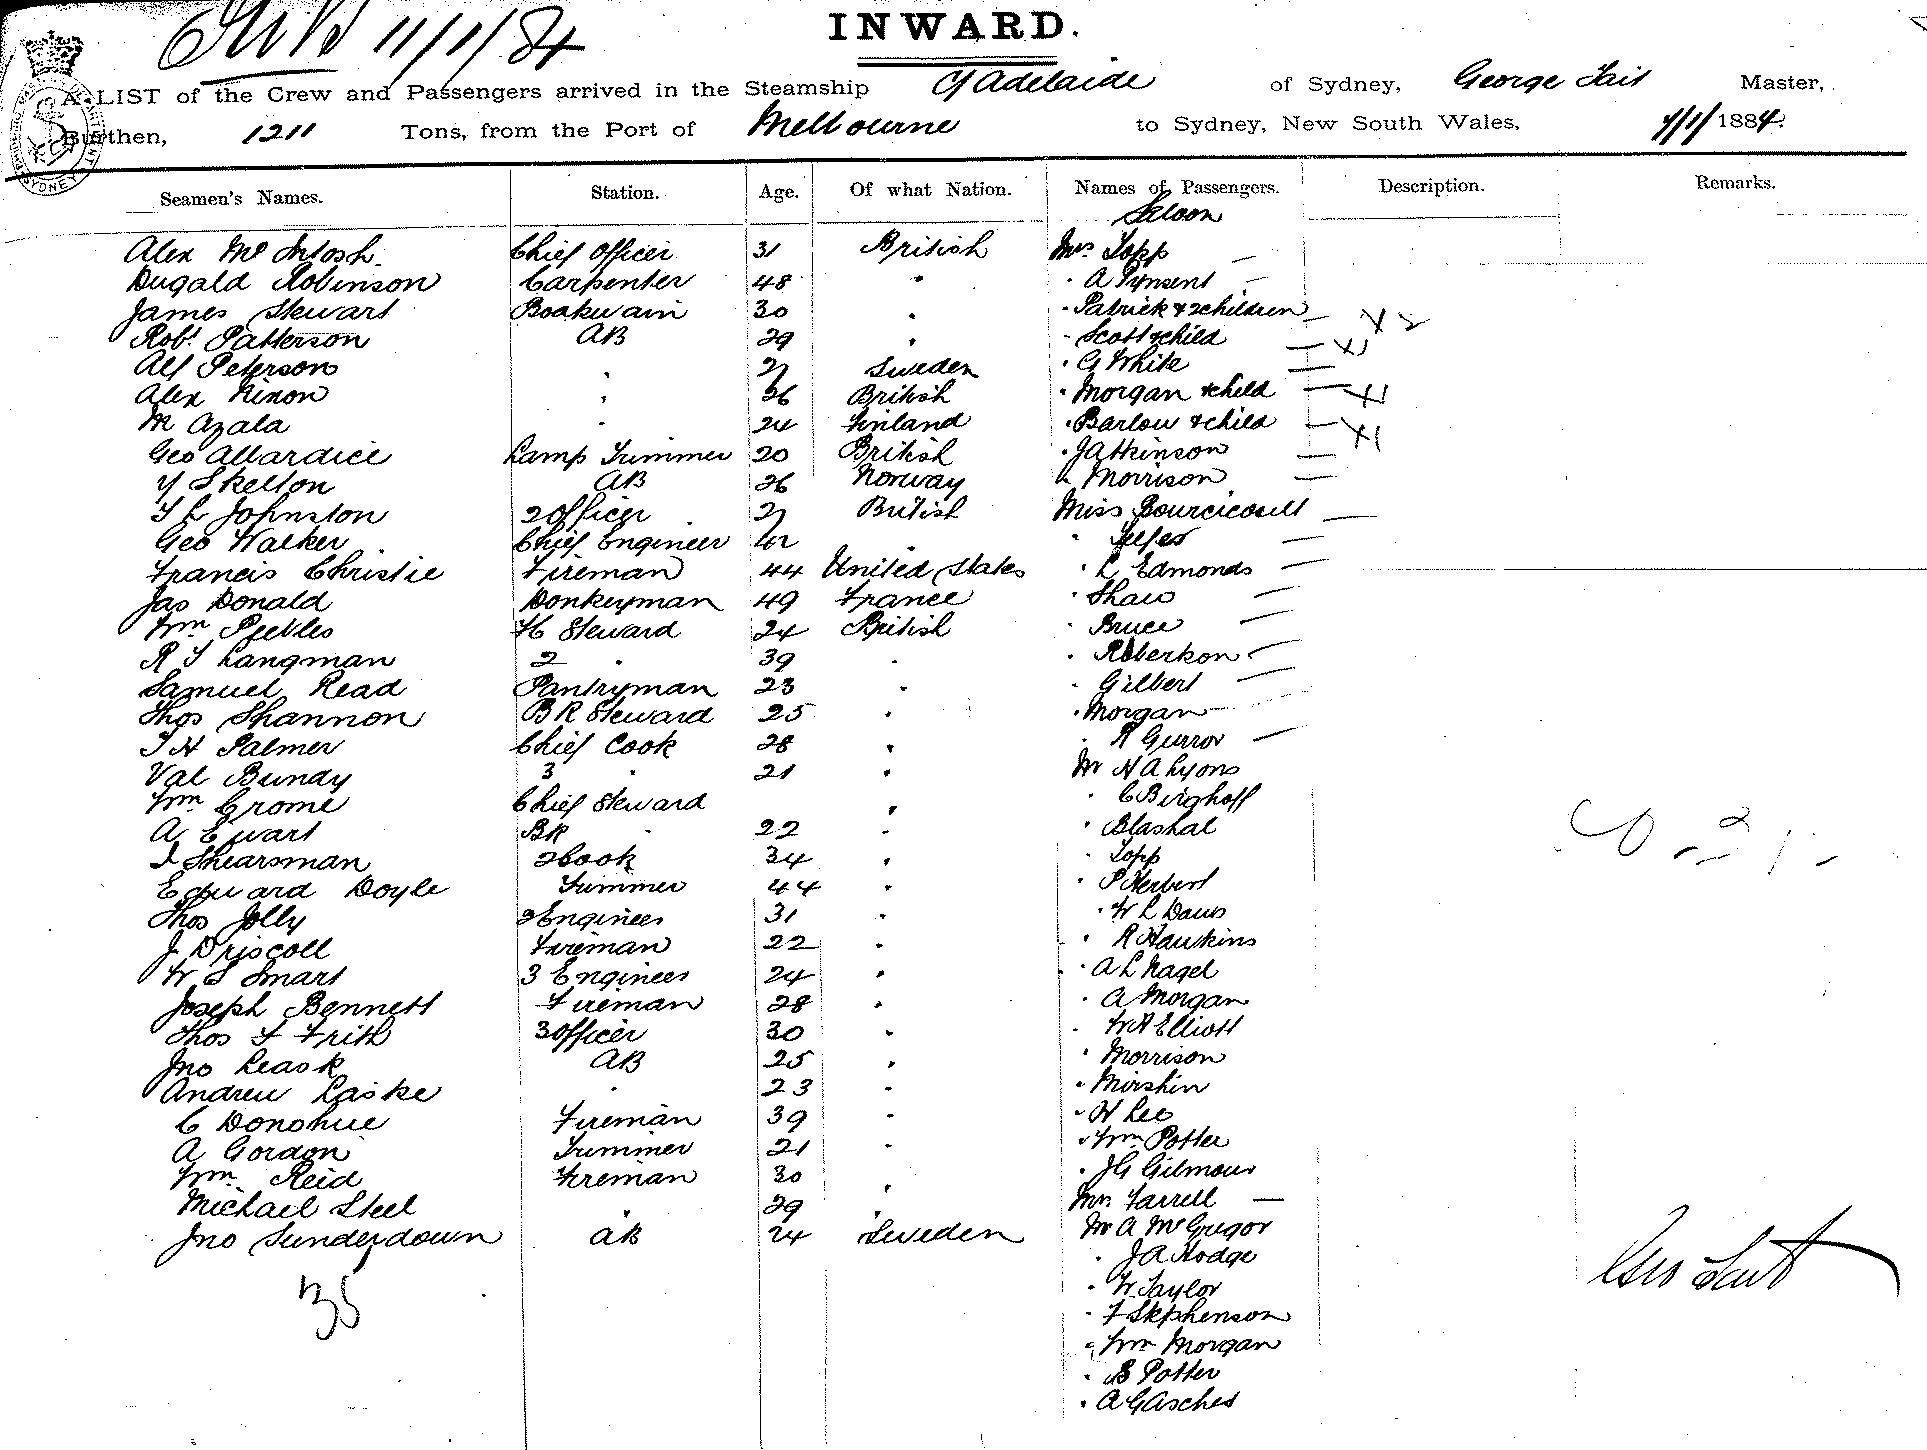 11/1/84
INWARD.
A LIST of the Crew and Passengers arrived in the Steamship Y Adelaide of Sydney, George Tait Master,
Burthen, 1211 Tons, from the Port of Melbourne to Sydney, New South Wales, 1/1/1884.
Seamen's Names. Station. Age. Of what Nation. Names of Passengers. Description. Remarks.
Saloon
Alex McIntosh Chief Officer 31 British Mrs Topp —
Dugald Robinson Carpenter 48 " " A Pynsent —
James Stewart Boatswain 30 " " Patrick & 2 children — X 2
Robt Patterson AB 29 " " Scott & child — X1
Alf Peterson " 27 Sweden " G White —
Alex Nixon " 26 British " Morgan & child — X1
M Azala " 24 Finland " Barlow & child — X1
Geo Allardice Lamp Trimmer 20 British " J Atkinson —
Y Skelton AB 26 Norway " Morrison —
T L Johnston 2 Officer 27 British Miss Bourcicault —
Geo Walker Chief Engineer 42 " " —
Francis Christie Fireman 44 United States " L Edmonds —
Jas Donald Donkeyman 49 France " Shaw —
Wm Peebles F C Steward 24 British " Bruce —
R T Langman 2 " 39 " " Robertson —
Samuel Read Pantryman 23 " " Gilbert —
Thos Shannon BR Steward 25 " " Morgan —
T H Palmer Chief Cook 28 " " R Gurror —
Val Bundy 3 " 21 " Mr H A Lyons
Wm Crome Chief Steward " " C Birghoff
A Ewart BR " 22 " " Blashal
I Shearsman 2 Cook 34 " " Topp
Edward Doyle Trimmer 44 " " P Herbert
Thos Jolly 2 Engineer 31 " " W L Davis
J Driscoll Fireman 22 " " R Hawkins
W S Smart 3 Engineer 24 " " A L Nagel
Joseph Bennett Fireman 28 " " A Morgan
Thos F Frith 3 Officer 30 " " W A Elliott
Jno Leask AB 25 " " Morrison
Andrew Laske " 23 " " Mirshin
C Donohue Fireman 39 " " H Lee
A Gordon Trimmer 21 " " Wm Potter
Wm Reid Fireman 30 " " J G Gilmour
Michael Steel " 29 " Mrs Farrell —
Jno Sunderdown AB 24 Sweden Mr A McGregor
35
" J A Hodge
" W Taylor
" F Stephenson
" Wm Morgan
" B Potter
" A Gasches
Geo Tait